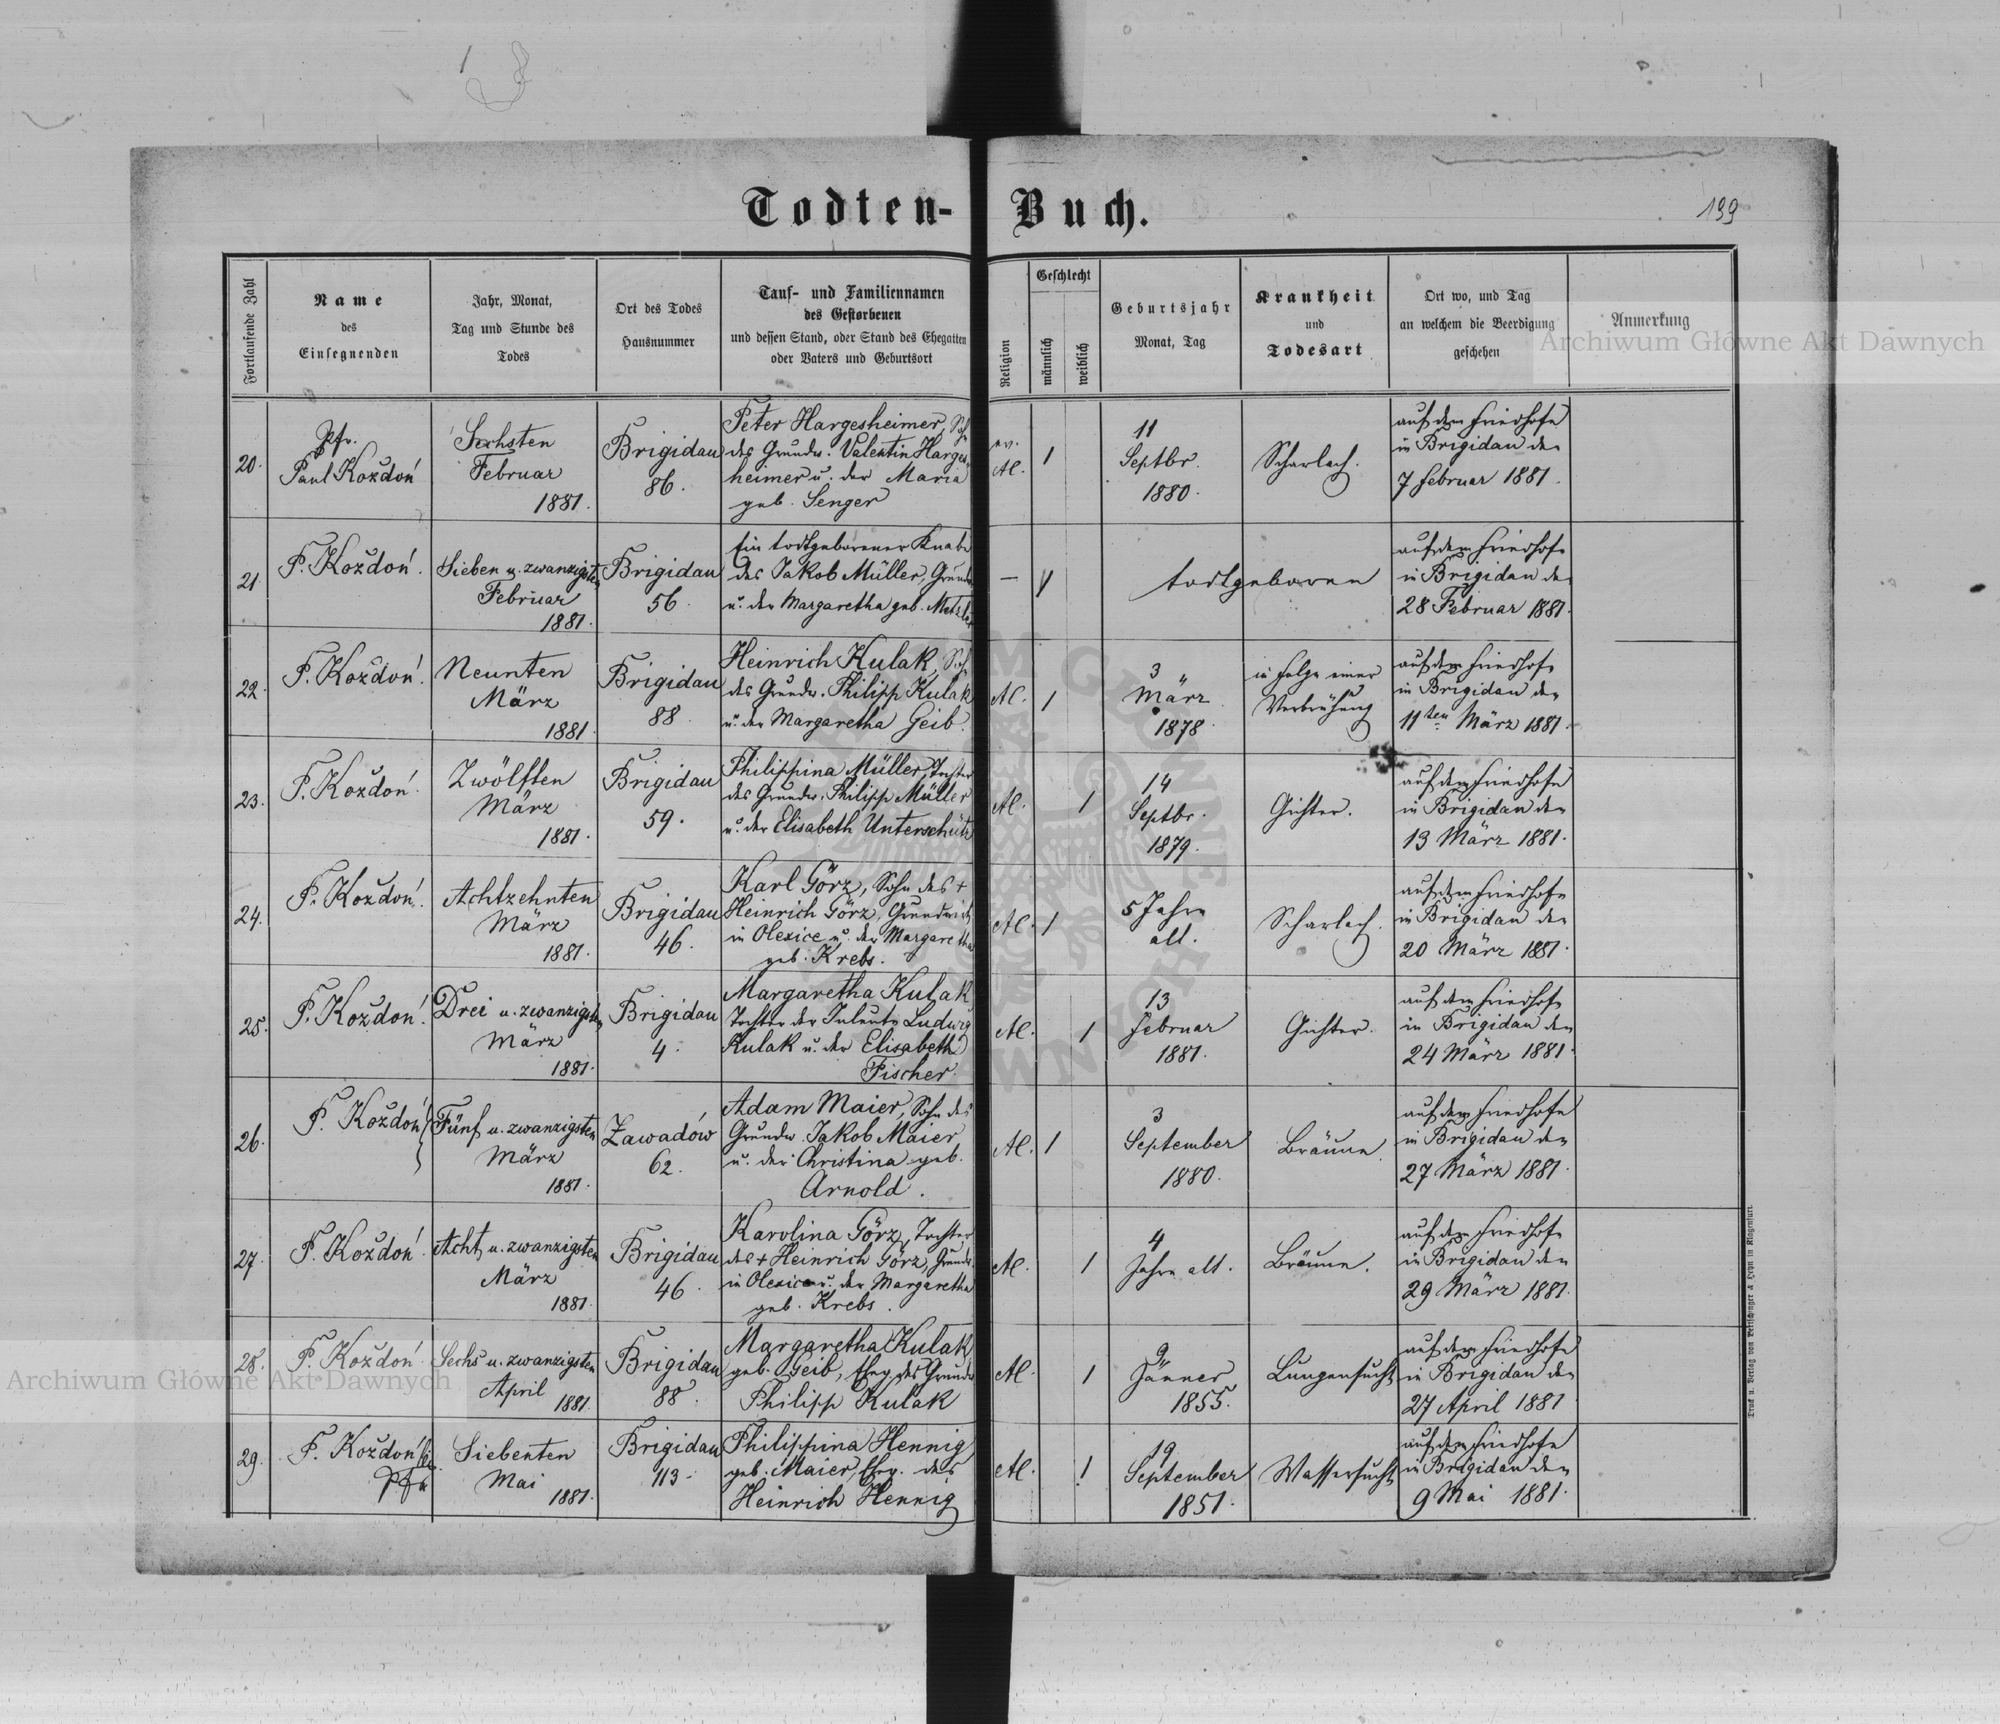 Todten-Buch.
199
Fortlaufende Zahl
Name
des
Einsegnenden
Jahr, Monat,
Tag und Stunde des
Todes
Ort des Todes
Hausnummer
Tauf- und Familiennamen
des Gestorbenen
und dessen Stand, oder Stand des Ehegatten
oder Vaters und Geburtsort
Religion
Geschlecht
männlich
weiblich
Geburtsjahr
Monat, Tag
Krankheit
und
Todesart
Ort wo, und Tag
an welchem die Beerdigung
geschehen
Anmerkung
20.
Pfr.
Paul Koždoń
Sechsten
Februar
1881.
Brigidau
86.
Peter Hargesheimer, Sohn
des Grundw. Valentin Harges-
heimer u. der Maria
geb. Senger
ev.
Al.
1
11
Septbr.
1880.
Scharlach.
auf dem Friedhofe
in Brigidau den
7 Februar 1881.
21.
P. Koždoń.
Sieben u. zwanzigsten
Februar
1881.
Brigidau
56.
Ein todtgeborener Knabe
des Jakob Müller, Grundw.
u. der Margaretha geb. Metzler
—
1
todtgeboren
auf dem Friedhofe
in Brigidau den
28 Februar 1881.
22.
P. Koždoń.
Neunten
März
1881.
Brigidau
88.
Heinrich Kulak, Sohn
des Grundw. Philipp Kulak
u. der Margaretha Geib.
Al.
1
3
März
1878.
in Folge einer
Verbrühung
auf dem Friedhofe
in Brigidau den
11ten März 1881.
23.
P. Koždoń.
Zwölften
März
1881.
Brigidau
59.
Philippina Müller, Tochter
des Grundw. Philipp Müller
u. der Elisabeth Unterschütz
Al.
1
14
Septbr.
1879.
Gichter.
auf dem Friedhofe
in Brigidau den
13 März 1881.
24.
P. Koždoń.
Achtzehnten
März
1881.
Brigidau
46.
Karl Görz, Sohn des +
Heinrich Görz, Grundwirth
in Olexice u. der Margaretha
geb. Krebs.
Al.
1
5 Jahre
alt.
Scharlach.
auf dem Friedhofe
in Brigidau den
20 März 1881.
25.
P. Koždoń.
Drei u. zwanzigsten
März
1881.
Brigidau
4.
Margaretha Kulak
Tochter der Inleute Ludwig
Kulak u. der Elisabeth
Fischer.
Al.
1
13
Februar
1881.
Gichter.
auf dem Friedhofe
in Brigidau den
24 März 1881.
26.
P. Koždoń
Fünf u. zwanzigsten
März
1881.
Zawadów
62.
Adam Maier, Sohn des
Grundw. Jakob Maier
u. der Christina geb.
Arnold.
Al.
1
3
September
1880.
Bräune.
auf dem Friedhofe
in Brigidau den
27 März 1881.
27.
P. Koždoń.
Acht u. zwanzigsten
März
1881.
Brigidau
46.
Karolina Görz, Tochter
des + Heinrich Görz, Grundw.
in Olexice u. der Margaretha
geb. Krebs.
Al.
1
4
Jahre alt.
Bräune.
auf dem Friedhofe
in Brigidau den
29 März 1881.
28.
P. Koždoń
Sechs u. zwanzigsten
April
1881.
Brigidau
88.
Margaretha Kulak
geb. Geib, Eheg. des Grundw.
Philipp Kulak
Al.
1
9
Jänner
1855.
Lungensucht
auf dem Friedhofe
in Brigidau den
27 April 1881
29.
P. Koždoń
Pfr
Siebenten
Mai
1881.
Brigidau
113.
Philippina Hennig
geb. Maier, Eheg. des
Heinrich Hennig
Al.
1
19
September
1851.
Wassersucht
auf dem Friedhofe
in Brigidau den
9 Mai 1881.
Druck u. Verlag von Bertschinger & Heyn in Klagenfurt.
Archiwum Główne Akt Dawnych
Archiwum Główne Akt Dawnych